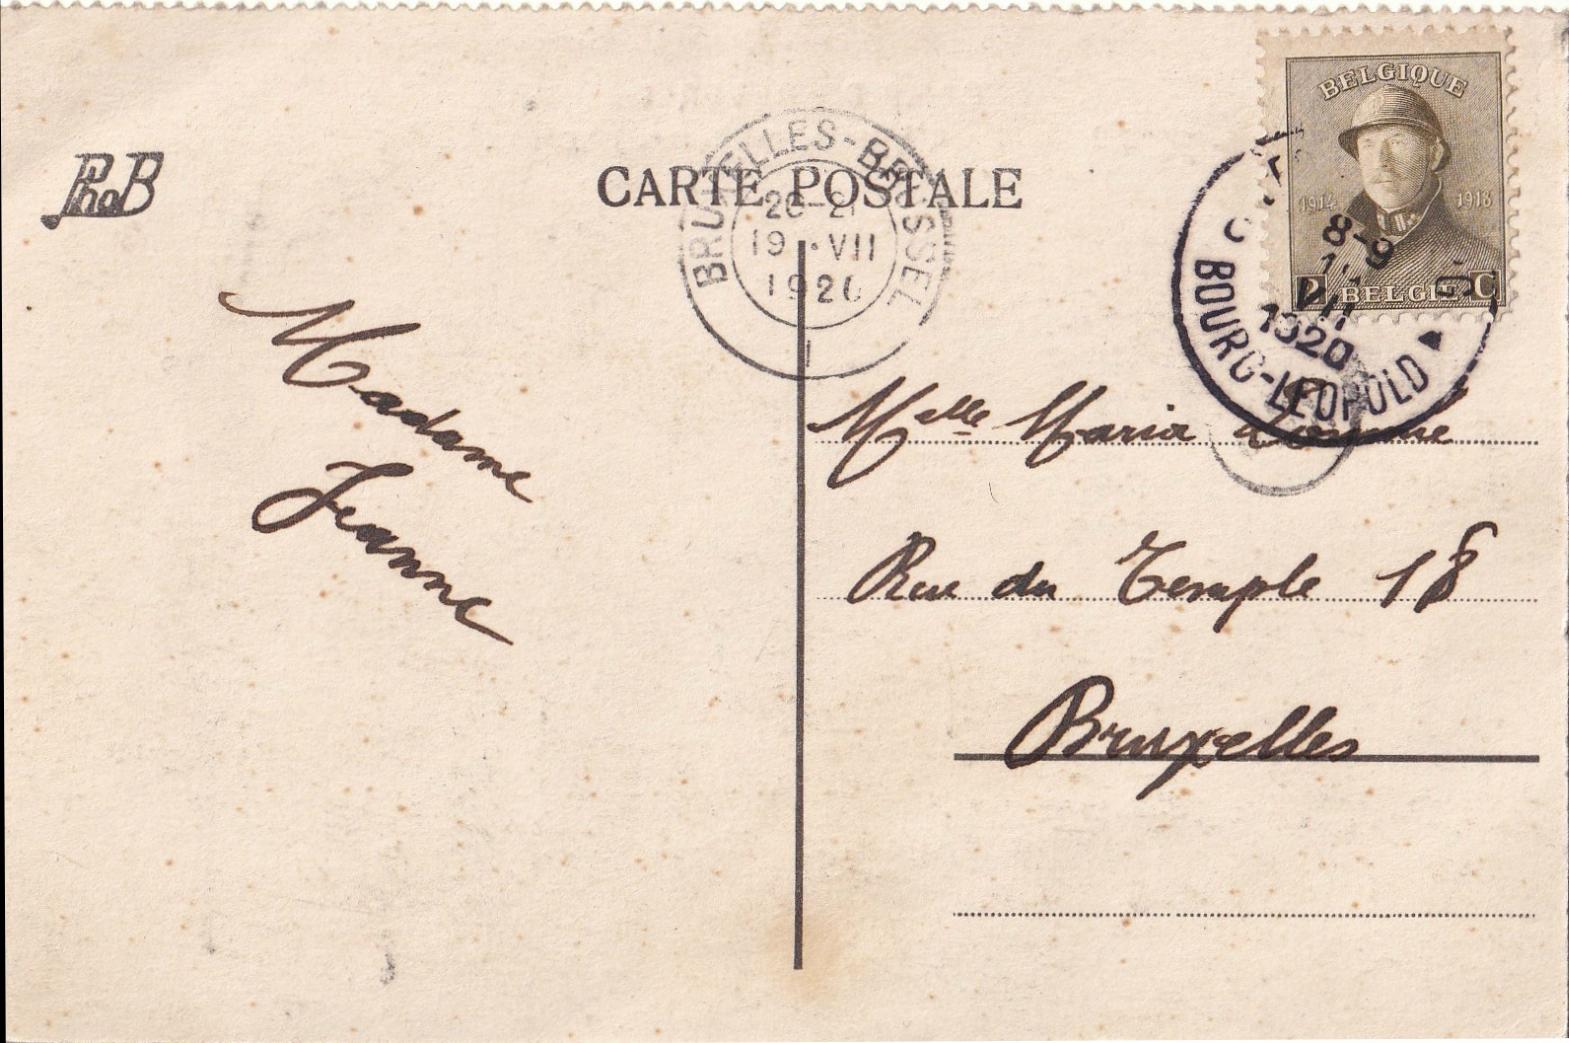 PhoB
CARTE POSTALE
BRUXELLES-BRUSSEL
19 · VII
1920
1
BELGIQUE
1914 1918
2 BELGIË C
8-9
VII
1920
BOURG-LEOPOLD
Madame
Jeanne
Melle Maria
Rue du Temple 18
Bruxelles